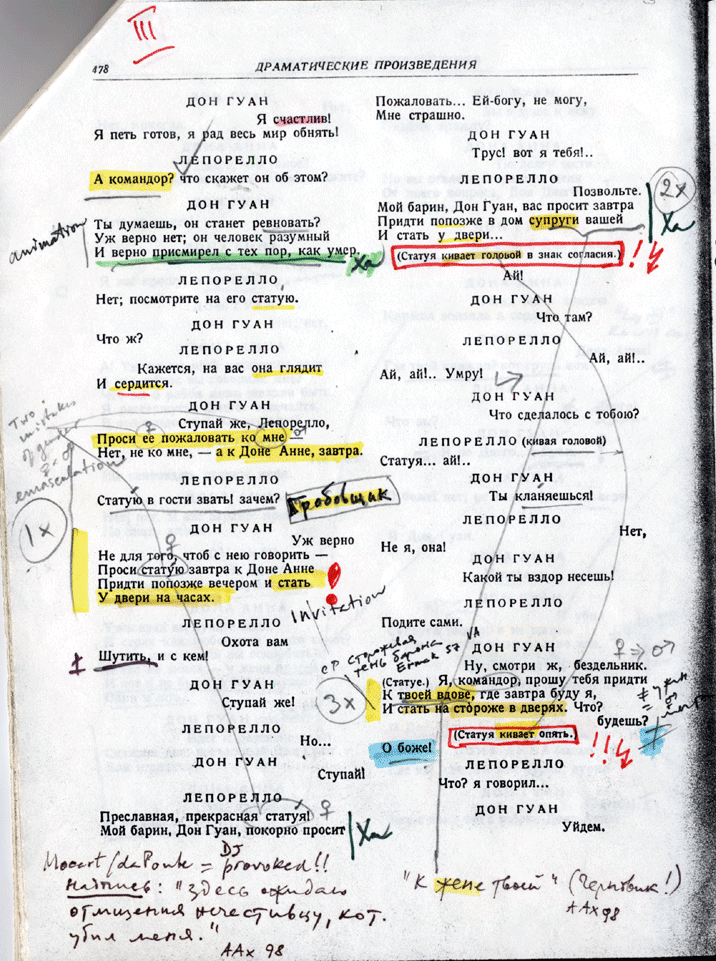 III
478
ДРАМАТИЧЕСКИЕ ПРОИЗВЕДЕНИЯ
ДОН ГУАН
Я счастлив!
Я петь готов, я рад весь мир обнять!
ЛЕПОРЕЛЛО
А командор? что скажет он об этом?
ДОН ГУАН
Ты думаешь, он станет ревновать?
animation
Уж верно нет; он человек разумный
И верно присмирел с тех пор, как умер.
Ха
ЛЕПОРЕЛЛО
Нет; посмотрите на его статую.
ДОН ГУАН
Что ж?
ЛЕПОРЕЛЛО
Кажется, на вас она глядит
И сердится.
ДОН ГУАН
Ступай же, Лепорелло,
Проси ее пожаловать ко мне —
Нет, не ко мне, — а к Доне Анне, завтра.
Two
mistakes
of gender
♀ ♂
emasculation
1x
ЛЕПОРЕЛЛО
Статую в гости звать! зачем?
Гробовщик
ДОН ГУАН
Уж верно
Не для того, чтоб с нею говорить —
Проси статую завтра к Доне Анне
Придти попозже вечером и стать
У двери на часах.
!
Invitation
ЛЕПОРЕЛЛО
Охота вам
Шутить, и с кем!
ДОН ГУАН
Ступай же!
ЛЕПОРЕЛЛО
Но...
ДОН ГУАН
Ступай!
ЛЕПОРЕЛЛО
Преславная, прекрасная статуя!
♀
Мой барин, Дон Гуан, покорно просит
Ха
Пожаловать... Ей-богу, не могу,
Мне страшно.
ДОН ГУАН
Трус! вот я тебя!..
ЛЕПОРЕЛЛО
Позвольте.
2x
Мой барин, Дон Гуан, вас просит завтра
Придти попозже в дом супруги вашей
Ха
И стать у двери...
(Статуя кивает головой в знак согласия.)
!
Ай!
ДОН ГУАН
Что там?
ЛЕПОРЕЛЛО
Ай, ай!..
Ай, ай!.. Умру!
ДОН ГУАН
Что сделалось с тобою?
ЛЕПОРЕЛЛО (кивая головой)
Статуя... ай!..
ДОН ГУАН
Ты кланяешься!
ЛЕПОРЕЛЛО
Нет,
Не я, она!
ДОН ГУАН
Какой ты вздор несешь!
ЛЕПОРЕЛЛО
Подите сами.
ср сторожевая
тень барона
57
VA
3x
ДОН ГУАН
♀ ⇒ ♂
Ну, смотри ж, бездельник.
(Статуе.) Я, командор, прошу тебя придти
К твоей вдове, где завтра буду я,
И стать на стороже в дверях. Что?
будешь?
(Статуя кивает опять.)
!!
О боже!
ЛЕПОРЕЛЛО
Что? я говорил...
ДОН ГУАН
Уйдем.
Mocart/daPonte = DJ provoked!!
Надпись: "Здесь ожидаю
отмщения нечестивцу, кот.
убил меня."
ААх 98
"К жене твоей" (Черновик!)
ААх 98